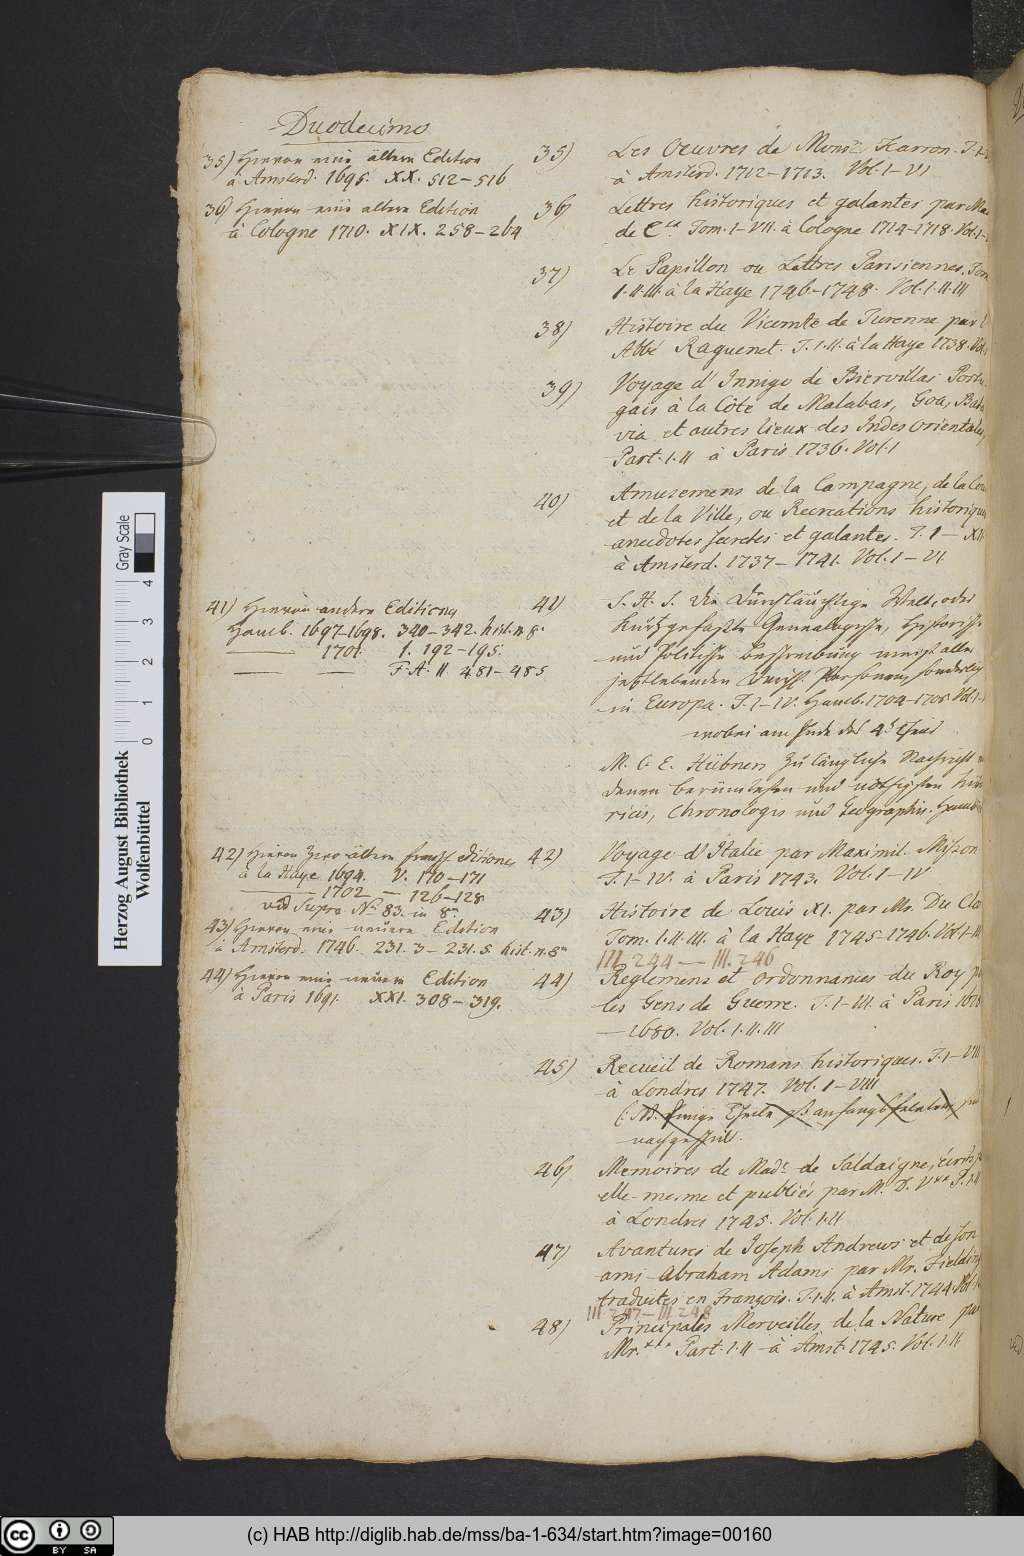 Duodecimo
35) Hiervon eine ältere Edition
à Amsterd. 1695. XX. 512–516
36) Hiervon eine ältere Edition
à Cologne 1710. XIX. 258–264
41) Hiervon andere Editiones
Hamb. 1697–1698. 340–342. hist. n. 8°
——— 1701. 1. 192–195.
——— —— F. A. II 481–485
42) Hiervon zwo ältere franzß Editiones
à la Haye 1694. V. 170–171
——— 1702 — 126–128
vid Supra No 83. in 8vo
43) Hiervon eine neuere Edition
à Amsterd. 1746. 231. 3–231. 5. hist. n. 8vo
44) Hiervon eine neuere Edition
à Paris 1691. XXI. 308–319.
35) Les Oeuvres de Monsr. Scarron. T. I–
à Amsterd. 1712–1713. Vol. I–VI
36) Lettres historiques et galantes par Ma
de C**. Tom. I–VII. à Cologne 1714–1718. Vol. I–
37) Le Papillon ou Lettres Parisiennes. Tom
I. II. III. à la Haye 1746–1748. Vol. I. II. III
38) Histoire du Vicomte de Turenne par l'
Abbé Raguenet. T. I. II. à la Haye 1738. Vol.
39) Voyage d'Innigo de Biervillas Portu
gais à la Côte de Malabar, Goa, Bata
via et autres lieux des Indes Orientales,
Part. I. II à Paris 1736. Vol. I
40) Amusemens de la Campagne, de la Cou
et de la Ville, ou Recreations historiques
anecdotes secretes et galantes. T. I–XII
à Amsterd. 1737–1741. Vol. I–VI
41) S. H. J. Die Durchläuchtige Welt, oder
kurtzgefaßte Genealogische, Historisch
und Politische Beschreibung meist aller
jetztlebenden Durchl. Personen, sonderlich
in Europa. T. I–IV. Hamb. 1704–1705. Vol. I–
wobei am Ende des 4t Theils
M. C. E. Hübners zulängliche Nachricht v
denen berümtesten und nöthigsten
ricis, Chronologis und Geographis. Hamb
42) Voyage d'Italie par Maximil. Misson
T. I–IV. à Paris 1743. Vol. I–IV
43) Histoire de Louis XI. par Mr. Du Clo
Tom. I. II. III. à la Haye 1745–1746. Vol. I–III
III. 244 — III. 246
44) Reglemens et ordonnances du Roy p
les Gens de Guerre. T. I–III. à Paris 1678
—1680. Vol. I. II. III
45) Recueil de Romans historiques. T. I–VIII
à Londres 1747. Vol. I–VIII
(: NB. Einige Theile so anfangs fehleten
46) Memoires de Made. de Saldaigne, écrits p
elle-mesme et publiés par M. D. V*** P. I. II
à Londres 1745. Vol. I. II
47) Avantures de Joseph Andrews et de son
ami Abraham Adams par Mr. Fielding
traduites en François. T. I. II. à Amst. 1744. Vol. I.
III. 247–III. 248
48) Principales Merveilles de la Nature par
Mr.*** Part. I. II à Amst. 1745. Vol. I. II
Herzog August Bibliothek
Wolfenbüttel
Gray Scale
0 1 2 3 4
cc BY SA
(c) HAB http://diglib.hab.de/mss/ba-1-634/start.htm?image=00160